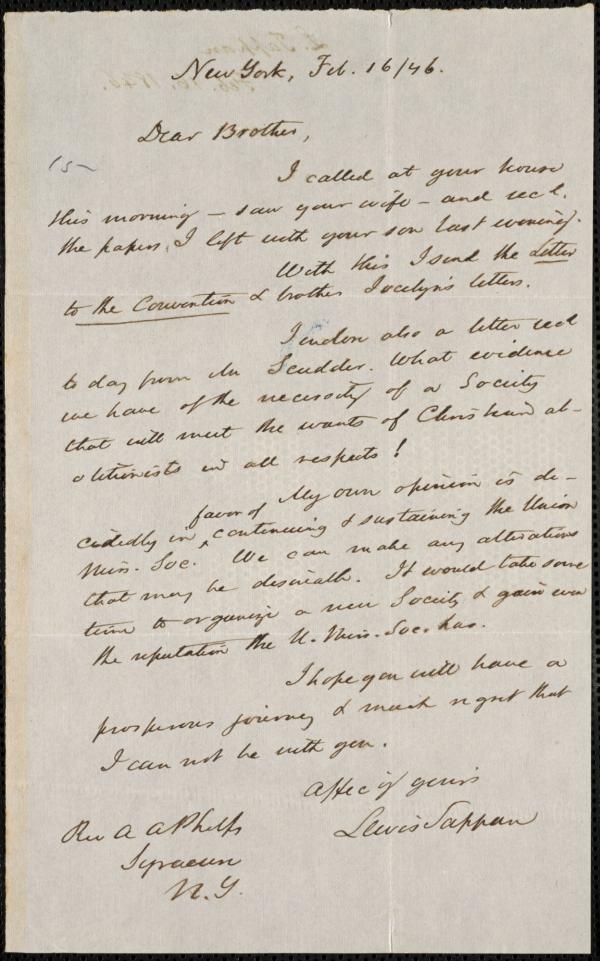 New York, Feb. 16/46.
Dear Brother,
I called at your house
this morning – saw your wife – and recd.
the papers, I left with your son last evening.
With this I send the Letter
to the Convention & brother Jocelyn's letters.
I enclose also a letter recd
to day from Mr Scudder. What evidence
we have of the necessity of a Society
that will meet the wants of Christian ab-
olitionists in all respects!
My own opinion is de-
cidedly in favor of continuing & sustaining the Union
Miss. Soc. We can make any alterations
that may be desirable. It would take some
time to organize a new Society & gain even
the reputation the U. Miss. Soc. has.
I hope you will have a
prosperous journey & much regret that
I can not be with you.
Affecy yours
Lewis Tappan
Rev A A Phelps
Syracuse
N.Y.